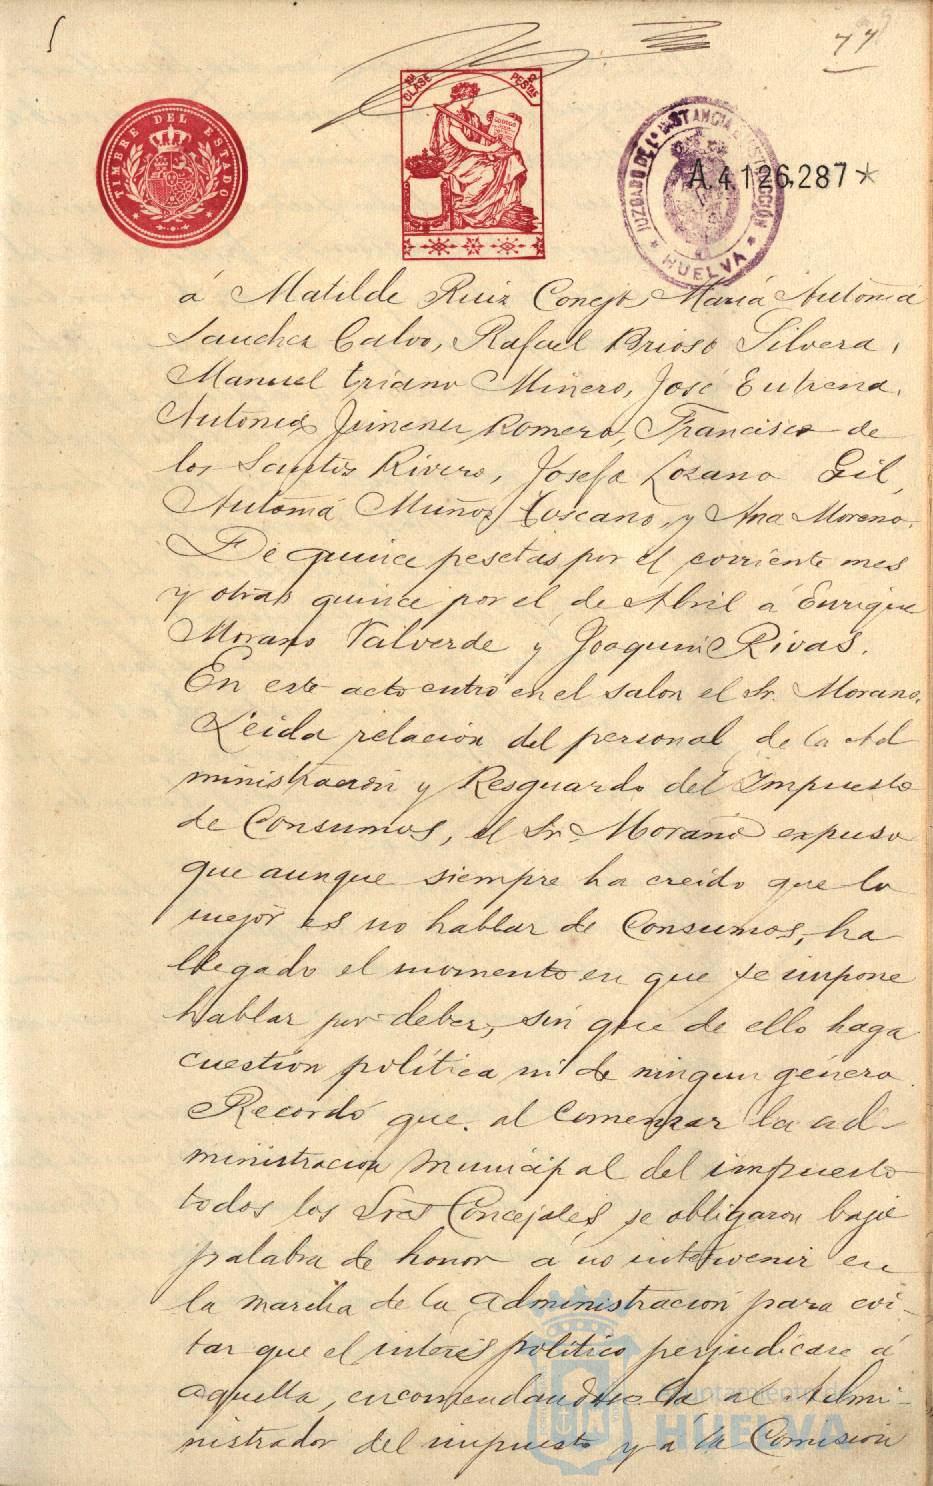 77
TIMBRE DEL ESTADO
10ª CLASE
PESETAS
JUZGADO DE 1ª INSTANCIA E INSTRUCCIÓN
HUELVA
A.4.126,287*
á Matilde Ruiz Conejo, María Antonia
Sanchez Calvo, Rafael Brioso Silvera,
Manuel Triano Miñero, José Eutrena,
Antonio Jimenez Romero, Francisco de
los Santos Rivero, Josefa Lozano Gil,
Antonia Muñoz Toscano, y Ana Moreno.
De quince pesetas por el corriente mes
y otras quince por el de Abril á Enrique
Morano Valverde y Joaquin Rivas.
En este acto entró en el salon el Sr. Morano.
Leida relación del personal de la Ad
ministración y Resguardo del Impuesto
de Consumos, el Sr. Morano expuso
que aunque siempre ha creido que lo
mejor es no hablar de Consumos, ha
llegado el momento en que se impone
hablar por deber, sin que de ello haga
cuestión política ni de ningun género.
Recordó que al comenzar la ad-
ministracion municipal del impuesto
todos los Sres Concejales, se obligaron bajo
palabra de honor á no intervenir en
la marcha de la administracion para evi-
tar que el interés político perjudicase á
aquella, encomendandose la al Admi-
nistrador del impuesto y á la Comisión
Ayuntamiento de
HUELVA